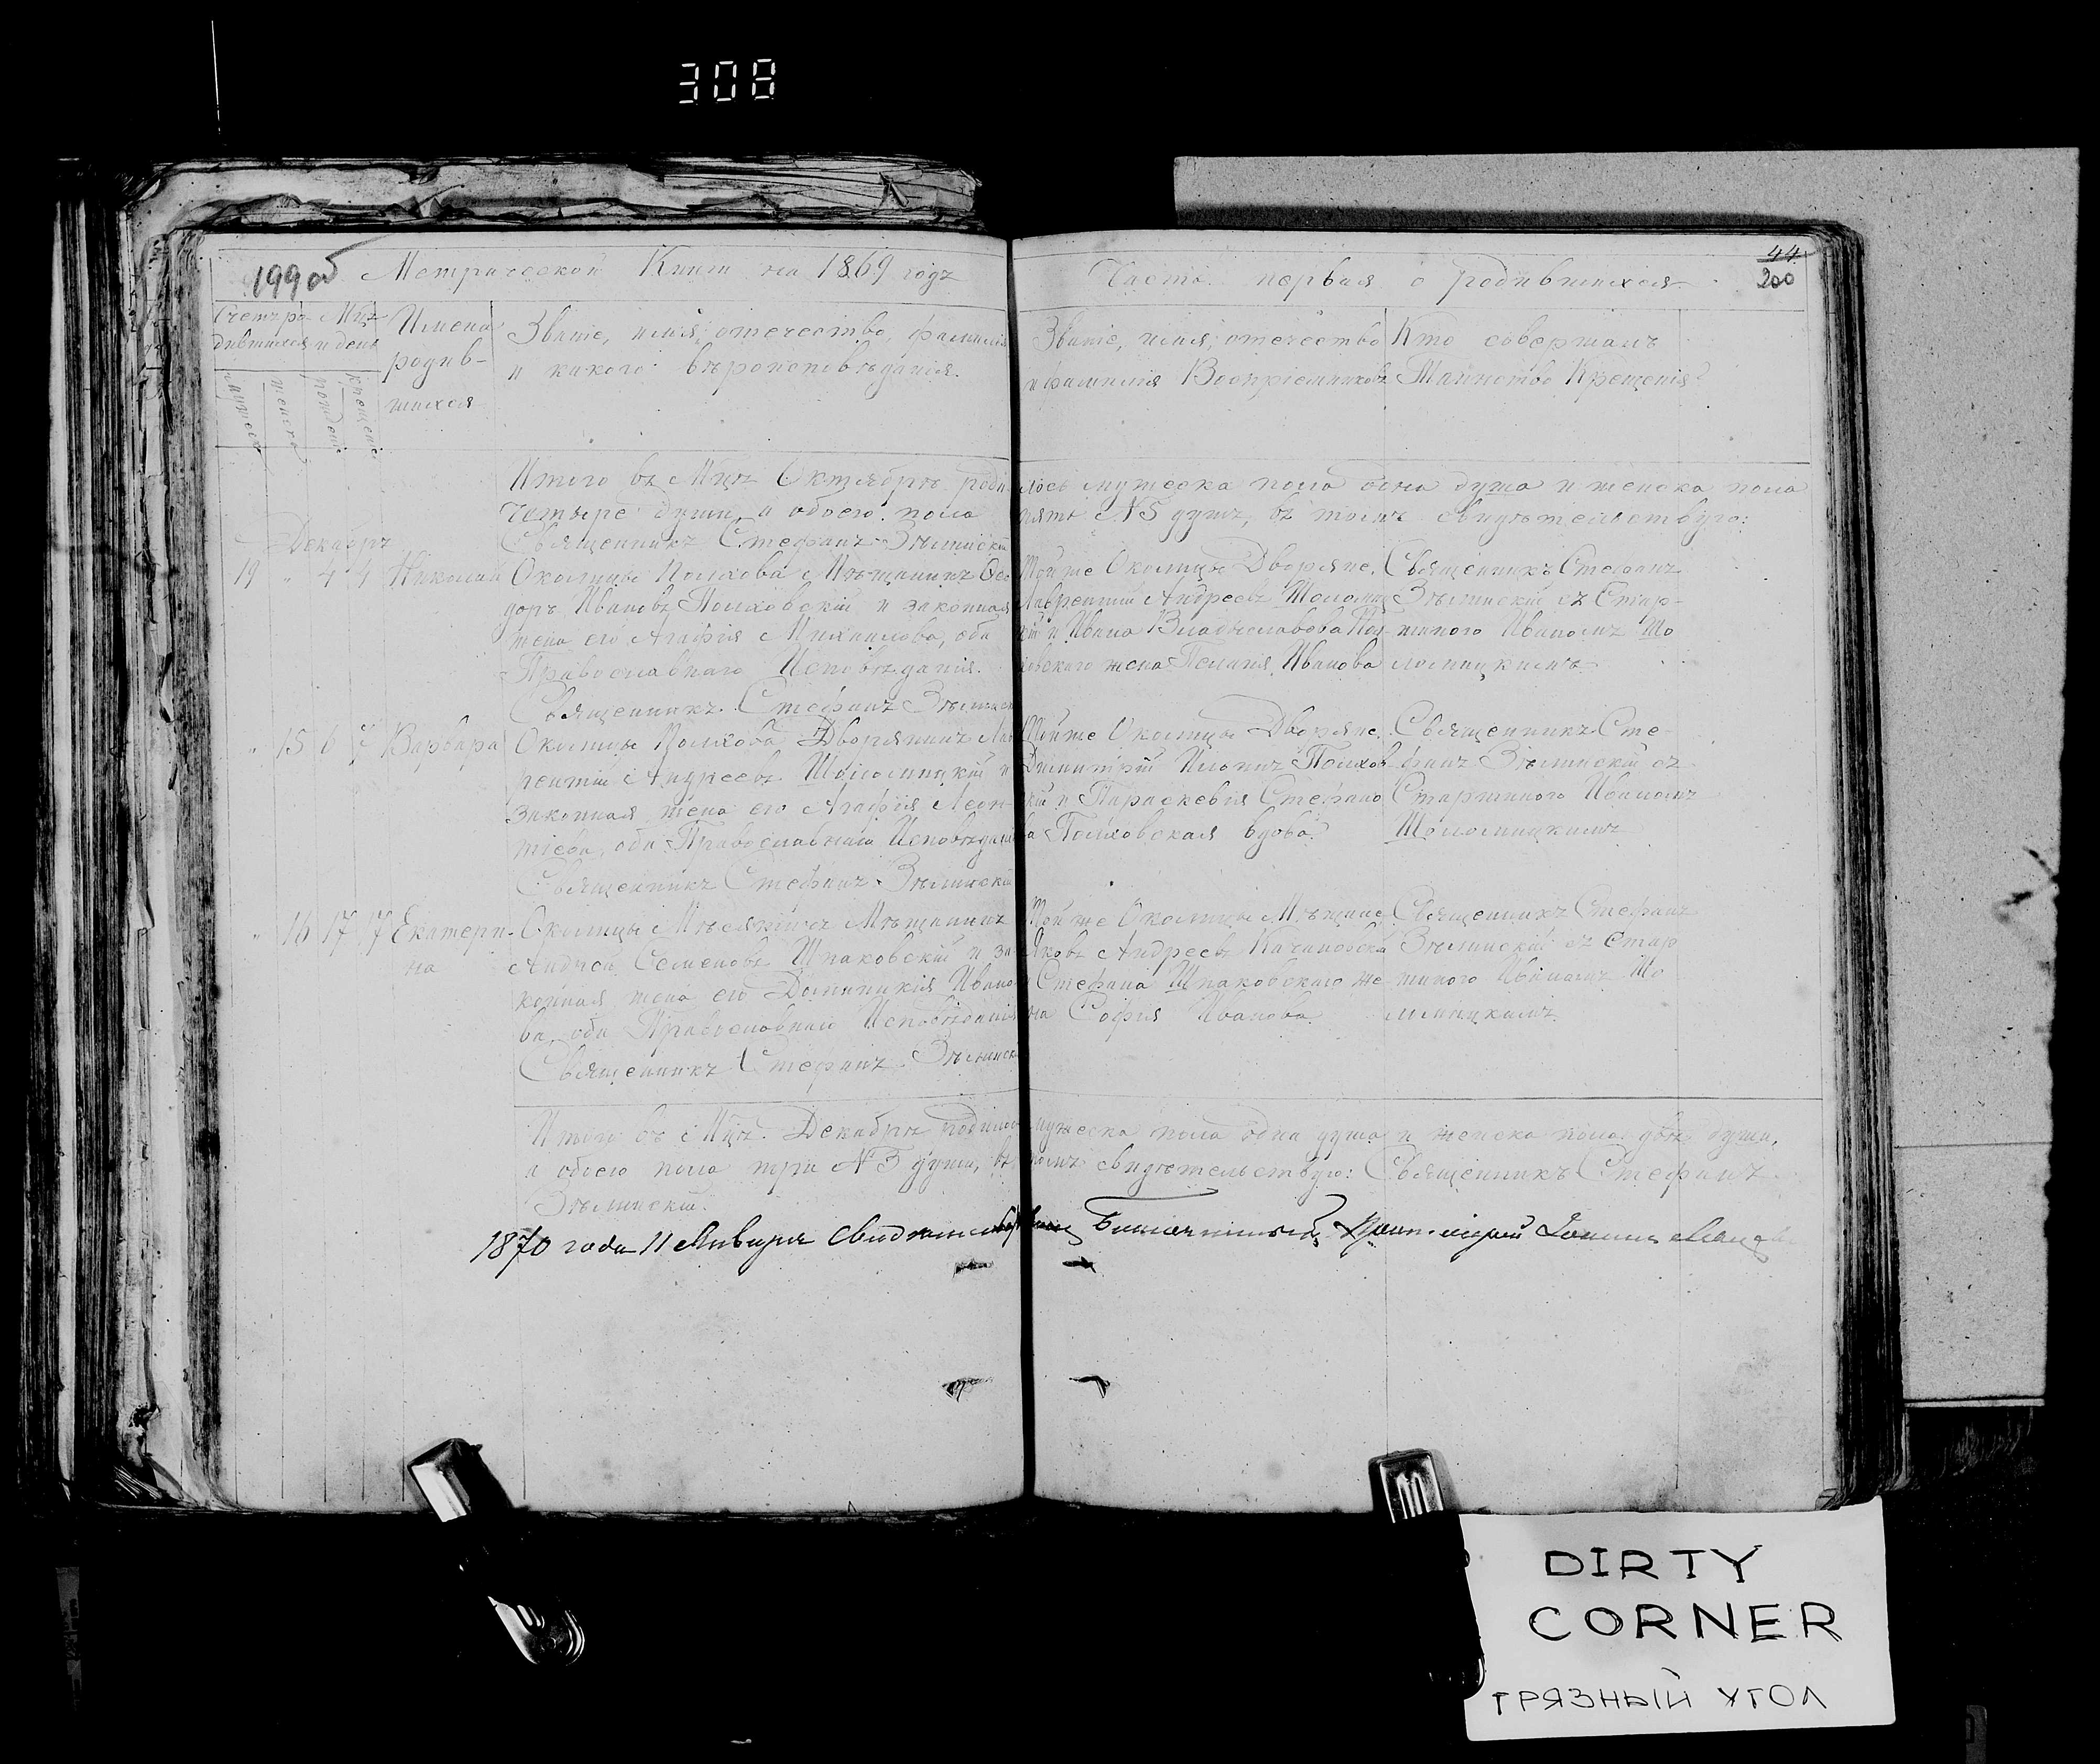 308
199 об
Метрической Книги на 1869 годъ
Часть первая о родившихся
44
200
Счетъ ро-
дившихся
Мцъ
и день
Имена
родив-
шихся
Званіе, имя, отечество, фамилія
и какого вѣроисповѣданія.
Званіе, имя, отечество
и фамилія Воспріемниковъ
Кто совершалъ
Таинство Крещенія?
Итого въ Мцѣ Октябрѣ роди-лось мужеска пола одна душа и женска пола
четыре души, а обоего пола пять №5 душъ, въ томъ свидѣтельствую:
Священникъ Стефанъ Зѣлинскій
Декабрь
19 " 4 4 Николай
Околицы Поихова Мѣщанинъ Ѳео-
доръ Ивановъ Поиховскій и законная
жена его Агафія Михаилова, оба
Православнаго Исповѣданія.
Священникъ Стефанъ Зѣлинскій
Той же Околицы Дворяне,
Лаврентій Андреевъ Шоломиц-
кій и Ивана Владиславова Пои-
ховскаго жена Пелагія Иванова
Священникъ Стефанъ
Зѣлинскій съ Стар-
шиного Иваномъ Шо
ломицкимъ
" 15 6 7 Варвара
Околицы Поихова Дворянинъ Лав-
рентій Андреевъ Шоломицкій и
законная жена его Агафія Леон-
тіева, оба Православнаго Исповѣданія
Священникъ Стефанъ Зѣлинскій
Той же Околицы Дворяне,
Димитрій Поихов-
кій и Параскевія Стефано-
ва Поиховская вдова.
Священникъ Сте-
фанъ Зѣлинскій съ
Старшиного Иваномъ
Шоломицкимъ
" 16 17 17 Екатери-
на
Околицы Мѣщанинъ
Андрей Семеновъ Шпаковскій и за-
конная жена его Доминикія Ивано-
ва, оба Православнаго Исповѣданія
Священникъ Стефанъ Зѣлинскій
Той же Околицы Мѣщане,
Яковъ Андреевъ Качановскій
Стефана Шпаковскаго же-
на Софія Иванова
Священникъ Стефанъ
Зѣлинскій съ Стар
шиного Иваномъ Шо
ломицкимъ
Итого въ Мцѣ Декабрѣ родилось мужеска пола одна душа и женска пола двѣ души,
а обоего пола три №3 души, въ томъ свидѣтельствую: Священникъ Стефанъ
Зѣлинскій.
1870 года 11 Января Благочинный, Іоаннъ
DIRTY
CORNER
ГРЯЗНЫЙ УГОЛ